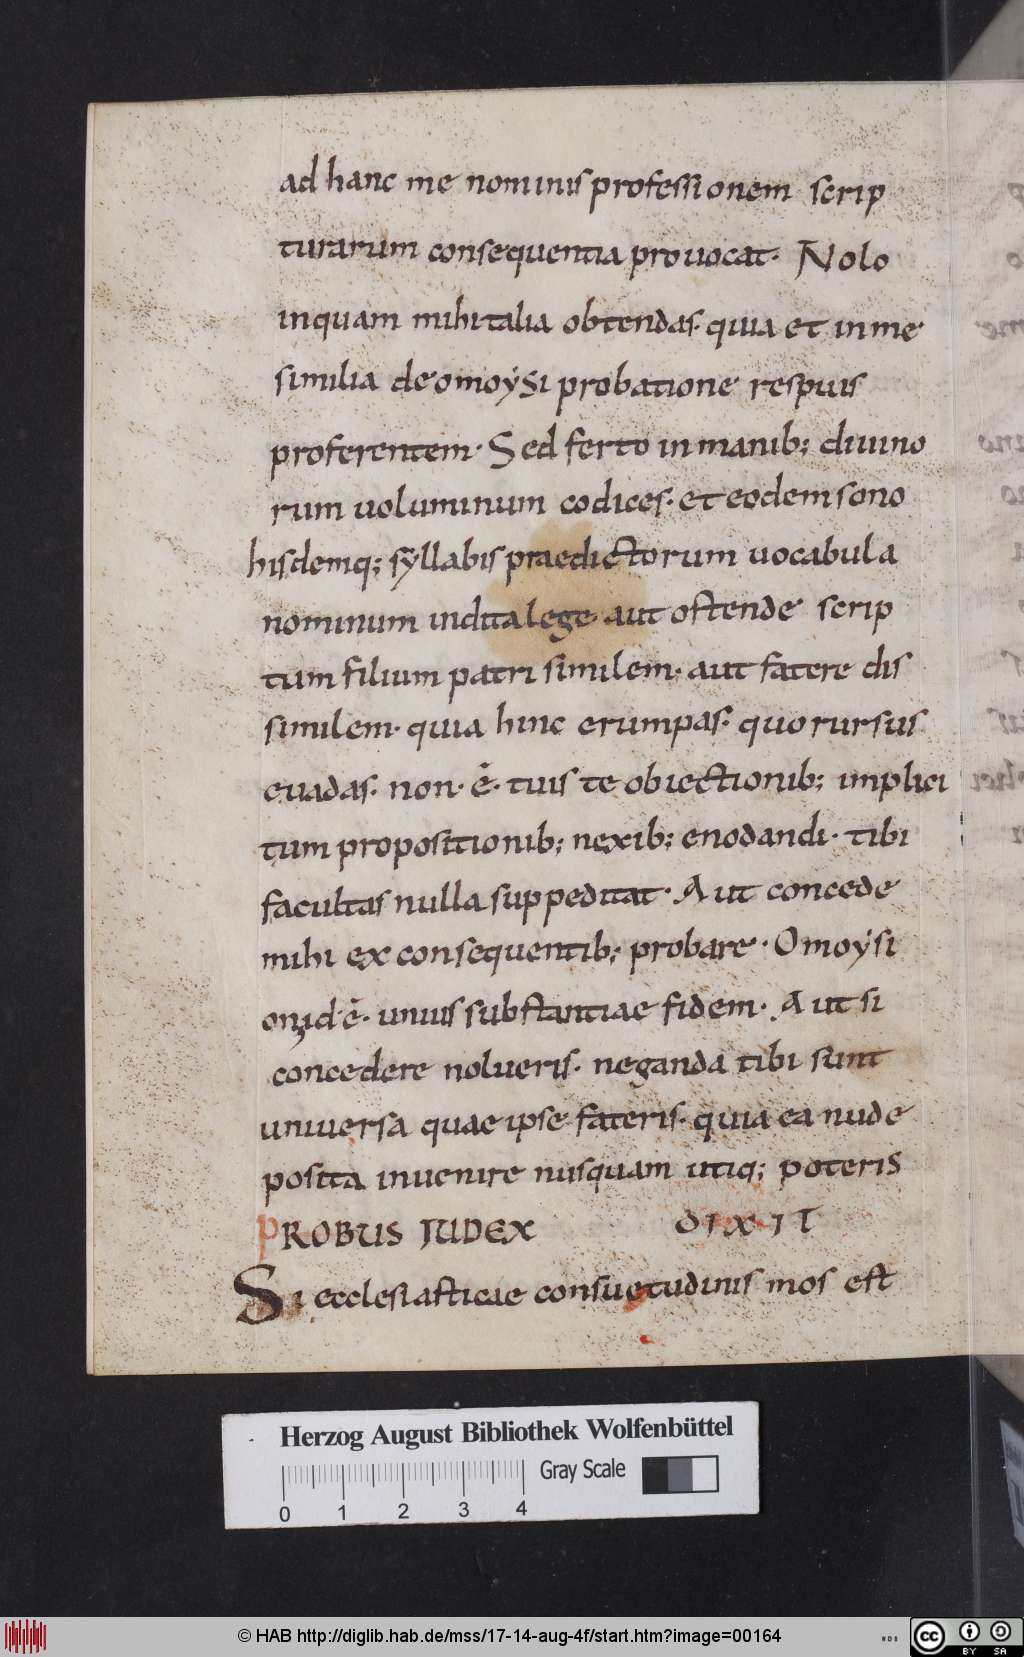 ad hanc me nominis professionem scrip
turarum consequentia prouocat· Nolo
inquam mihi talia obtendas· quia et in me
similia de omoysi probatione respuis
proferentem· Sed ferto in manib; diuino
rum uoluminum codices· et eodem sono
hisdemq; syllabis praedictorum uocabula
nominum indita lege· aut ostende scrip
tum filium patri similem· aut fatere dis
similem· quia hinc erumpas· quo rursus
euadas· non· ē· tuis te obiectionib; implici
tum propositionib; nexib; enodandi· tibi
facultas nulla suppeditat· Aut concede
mihi ex consequentib; probare· Omoysi
on id·ē· unius substantiae fidem· Aut si
concedere nolueris· neganda tibi sunt
uniuersa quae ipse fateris· quia ea nude
posita inuenire nusquam utiq; poteris
PROBUS IUDEX DIXIT
Si ecclesiasticae consuetudinis mos est
Herzog August Bibliothek Wolfenbüttel
Gray Scale
0 1 2 3 4
© HAB http://diglib.hab.de/mss/17-14-aug-4f/start.htm?image=00164
WDB
cc BY SA